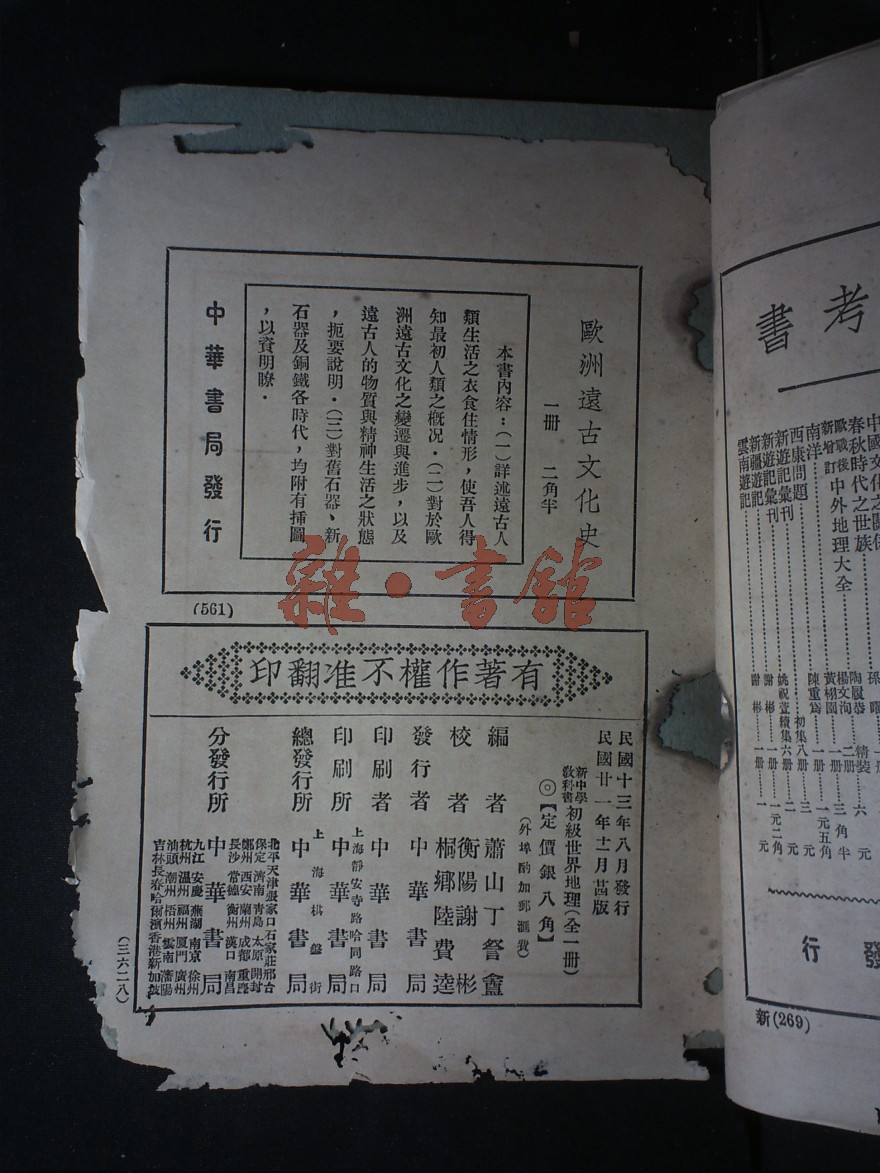 歐洲遠古文化史
一冊　二角半
本書內容：（一）詳述遠古人
類生活之衣食住情形，使吾人得
知最初人類之概况．（二）對於歐
洲遠古文化之變遷與進步，以及
遠古人的物質與精神生活之狀態
，扼要說明．（三）對舊石器、新
石器及銅鐵各時代，均附有插圖
，以資明瞭．
中華書局發行
(561)
有著作權不准翻印
民國十三年八月發行
民國廿一年十二月
版
新中學教科書
初級世界地理（全一冊）
◎【定價銀八角】
（外埠酌加郵滙費）
編者　蕭山丁詧盦
校者　衡陽謝彬
桐鄉陸費逵
發行者　中華書局
印刷者　中華書局
上海靜安寺路哈同路口
印刷所　中華書局
上海棋盤街
總發行所　中華書局
分發行所　中華書局
北平天津張家口石家莊邢台
保定濟南青島太原開封
鄭州西安蘭州成都重慶
長沙常德衡州漢口南昌
九江安慶蕪湖南京徐州
杭州溫州福州厦門廣州
汕頭潮州梧州雲南瀋陽
吉林長春哈爾濱香港新加坡
（三六二八）
雜·書館
考書
中國文化之關係
春秋時代之世族
歐戰後中外地理大全
新增訂
南洋
陳重爲　一冊　一元五角
西康問題
新遊記彙刊　初集八冊　三元
新遊記彙刊　姚祝萱續集六冊　二元
新疆遊記　謝彬　一冊　一元二角
雲南遊記　謝彬　一冊　一元
發行
新(269)